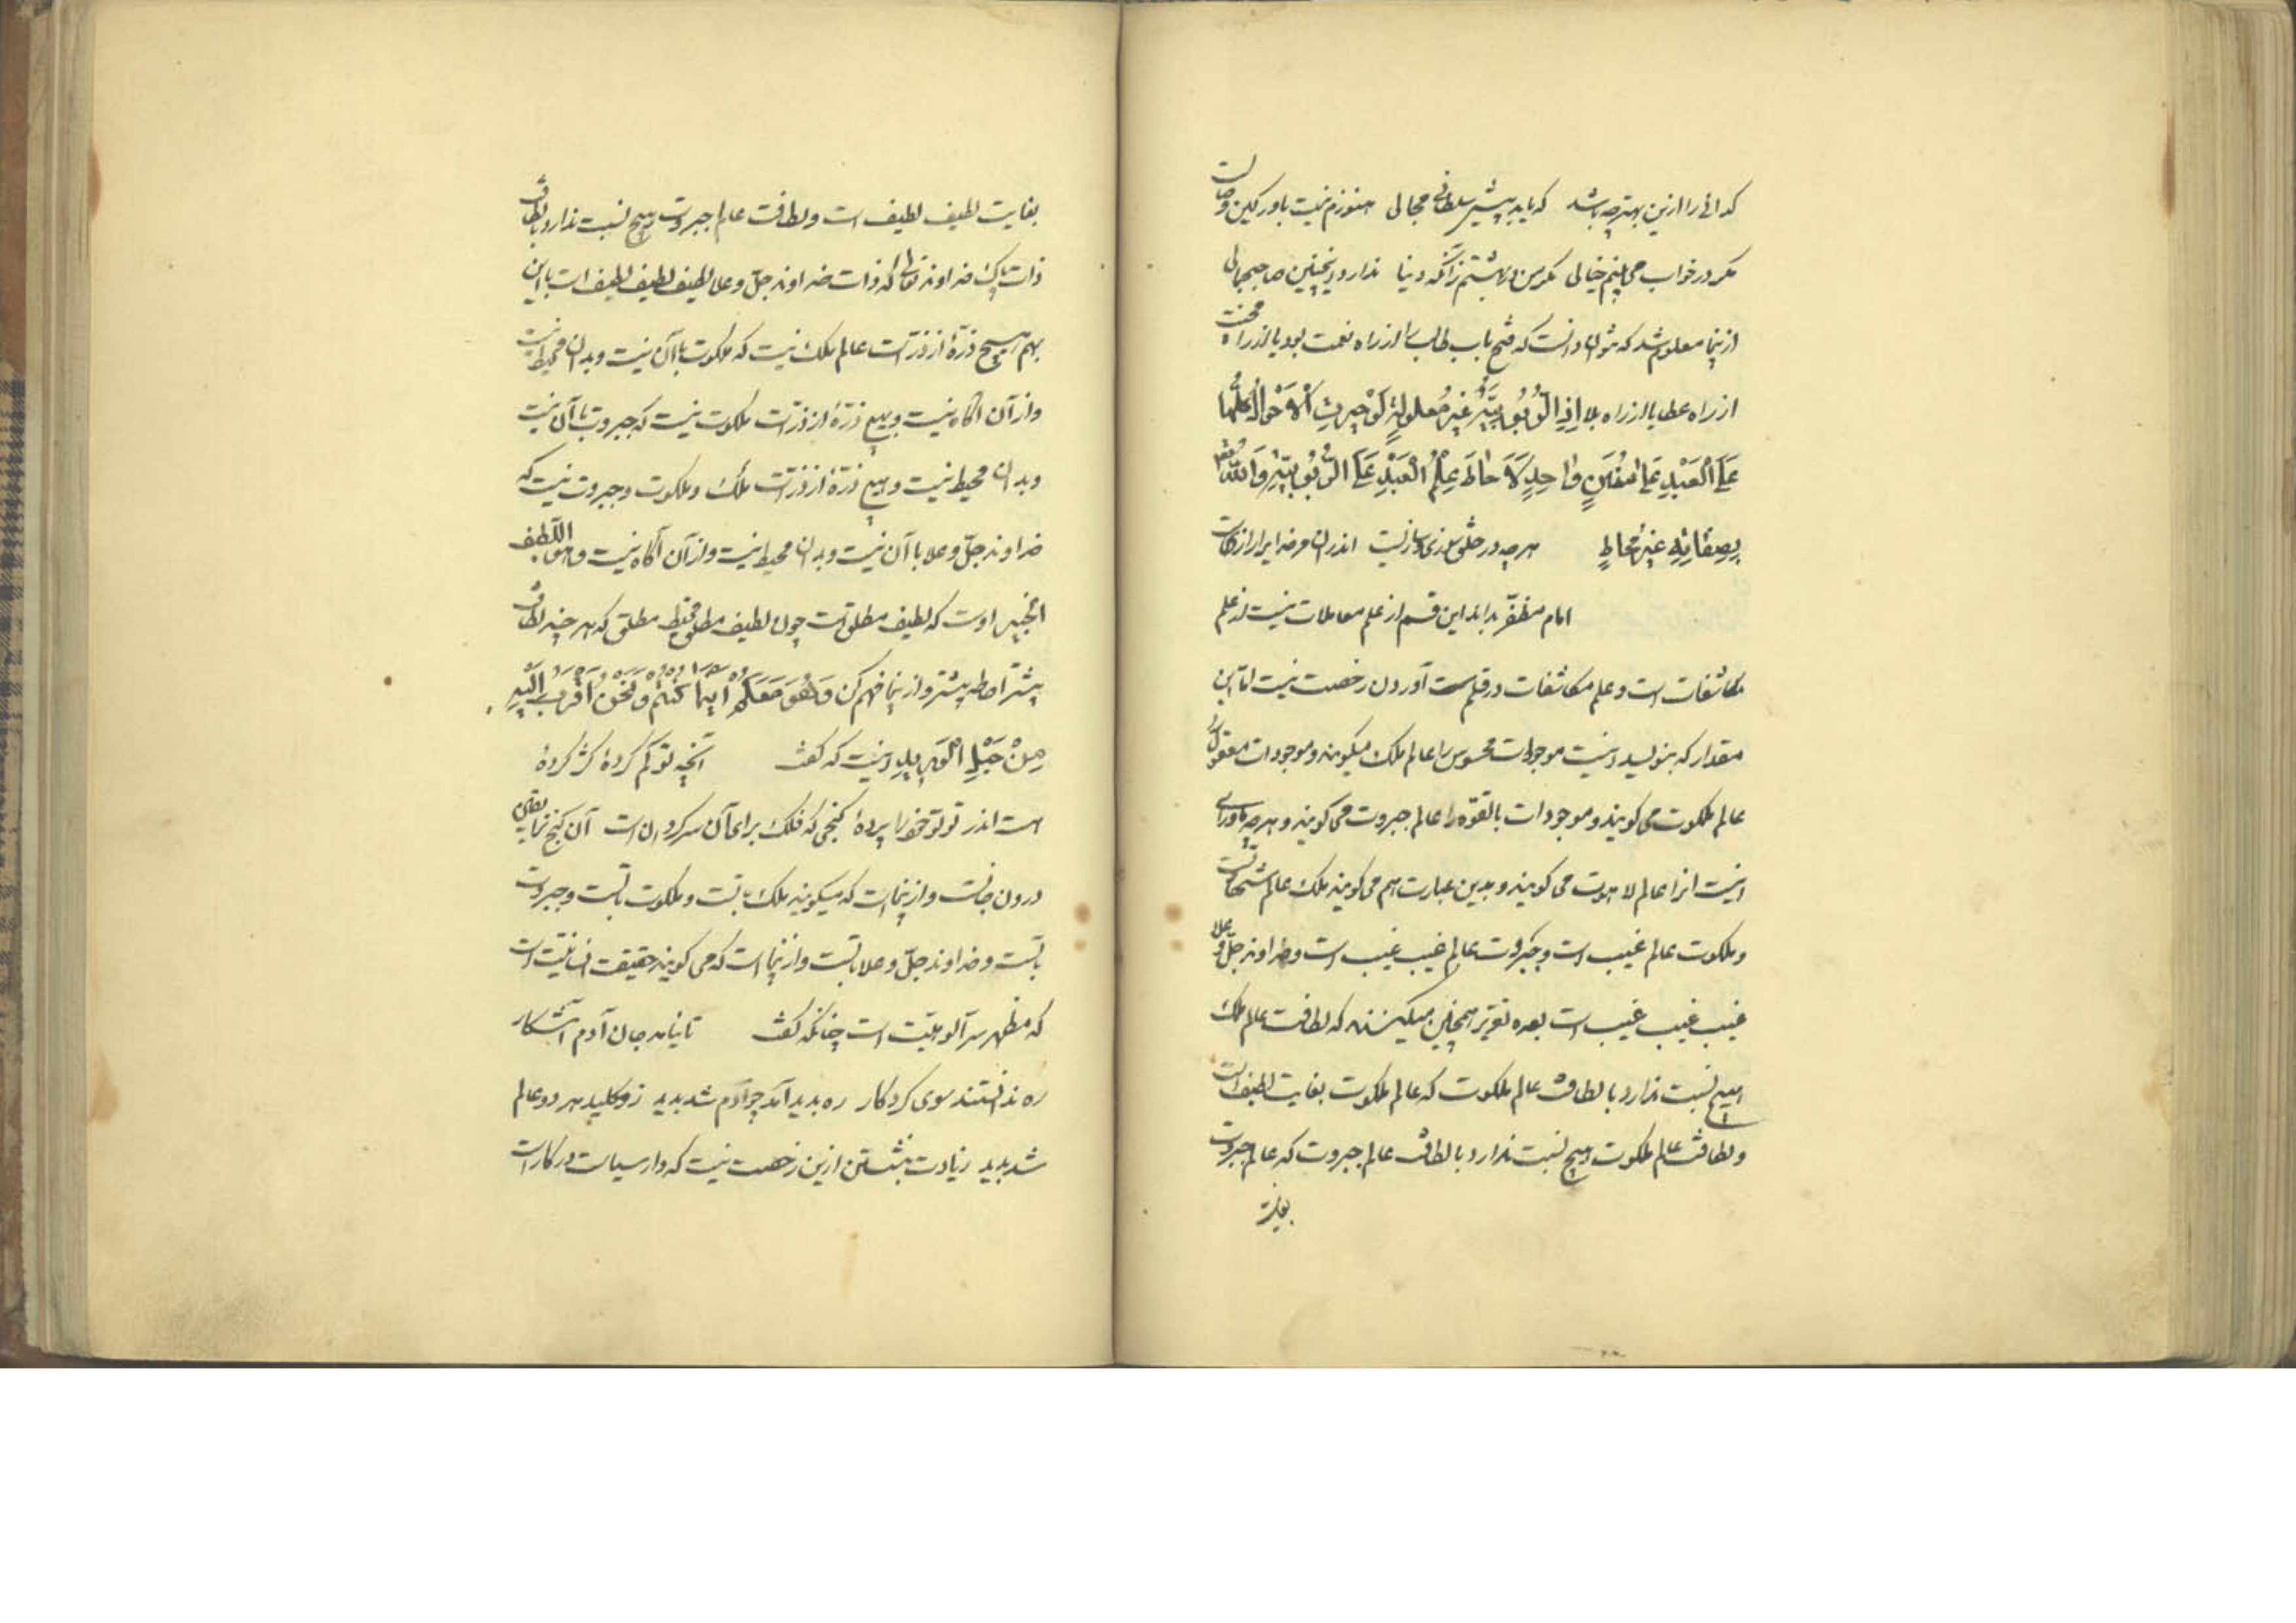 کدائی را ازین بهتر چه باشد که یابد پیش سلطانی مجالی هنوزم نیست باور کین وصالست
مکر در خواب می بینم خیالی مکر من در بهشتم زانکه دنیا ندارد اینچنین صاحبجمالی
ازینجا معلوم شد که نتوان دانست که فتح باب طالب را از راه نعمت بود یا از راه محنت
از راه عطا یا از راه بلا اذ الربوبیة غیر معلولة لو جرت الاحوال کلها
علی العبد علی سنن واحد لاحاط علم العبد علی الربوبیة والله تعالی
بصفاته غیر محاط هرچه در خلق سوزی و سازیست اندران مر خدایرا رازیست
امام مظفر بداند این قسم از علم معاملات نیست از علم
مکاشفات است و علم مکاشفات در قلمست آوردن رخصت نیست اما این
مقدار که بنویسد اینست موجودات محسوس را عالم ملک میکویند و موجودات معقول را
عالم ملکوت می کویند و موجودات بالقوه را عالم جبروت می کویند و هرچه ماورای
اینست انرا عالم لاهوت می کویند و بدین عبارت هم می کویند ملک عالم شهادتست
و ملکوت عالم غیب است و جبروت عالم غیب غیب است و خداوند جل و علا
غیب غیب غیب است بعده تقریر همچنین میکنند که لطافت عالم ملک
هیچ نسبت ندارد با لطافت عالم ملکوت که عالم ملکوت بغایت لطیف است
و لطافت عالم ملکوت هیچ نسبت ندارد با لطافت عالم جبروت که عالم جبروت
بغایت
بغایت لطیف لطیف است و لطافت عالم جبروت هیچ نسبت ندارد با لطافت
ذات پاک خداوند تعالی که ذات خداوند جل و علا لطیف لطیف لطیف است با این
بهم هیچ ذرۀ از ذرات عالم ملک نیست که ملکوت با آن نیست و بدان محیط نیست
و از آن اکاه نیست و هیچ ذرۀ از ذرات ملکوت نیست که جبروت با آن نیست
و بدان محیط نیست و هیچ ذرۀ از ذرات ملک و ملکوت و جبروت نیست که
خداوند جل و علا با آن نیست و بدان محیط نیست و از آن آکاه نیست و هو اللطیف
الخبیر اوست که لطیف مطلق است چون لطیف مطلق محیط مطلق که هر چند لطافت
بیشتر احاطه بیشتر و از اینجا فهم کن وَهُوَ مَعَكُمْ اَيْنَمَا كُنْتُمْ وَنَحْنُ اَقْرَبُ اِلَيْهِ
مِنْ حَبْلِ الْوَرِيدِ اینست که کفت آنچه تو کم کردۀ کر کردۀ
هست اندر تو تو خود را پردۀ کنجی که فلک برای آن سرکردان است آن کنج
درون جانست و از ینجاست که میکویند ملک با تست و ملکوت با تست و جبروت
با تست و خداوند جل و علا با تست و از ینجا است که می کویند حقیقت انسانیت است
که مظهر سر آلوهیت است چنانکه کفت تا نیامد جان آدم آشکار
ره ندانستند سوی کردکار ره بدید آمد چو آدم شد بدید زو کلید هر دو عالم
شد بدید زیادت نبشتن ازین رخصت نیست که دار سیاست در کار است